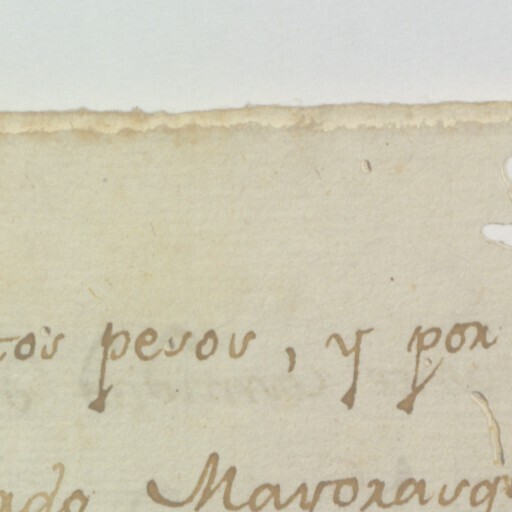 tos pesos, y por
ado Mayorasg